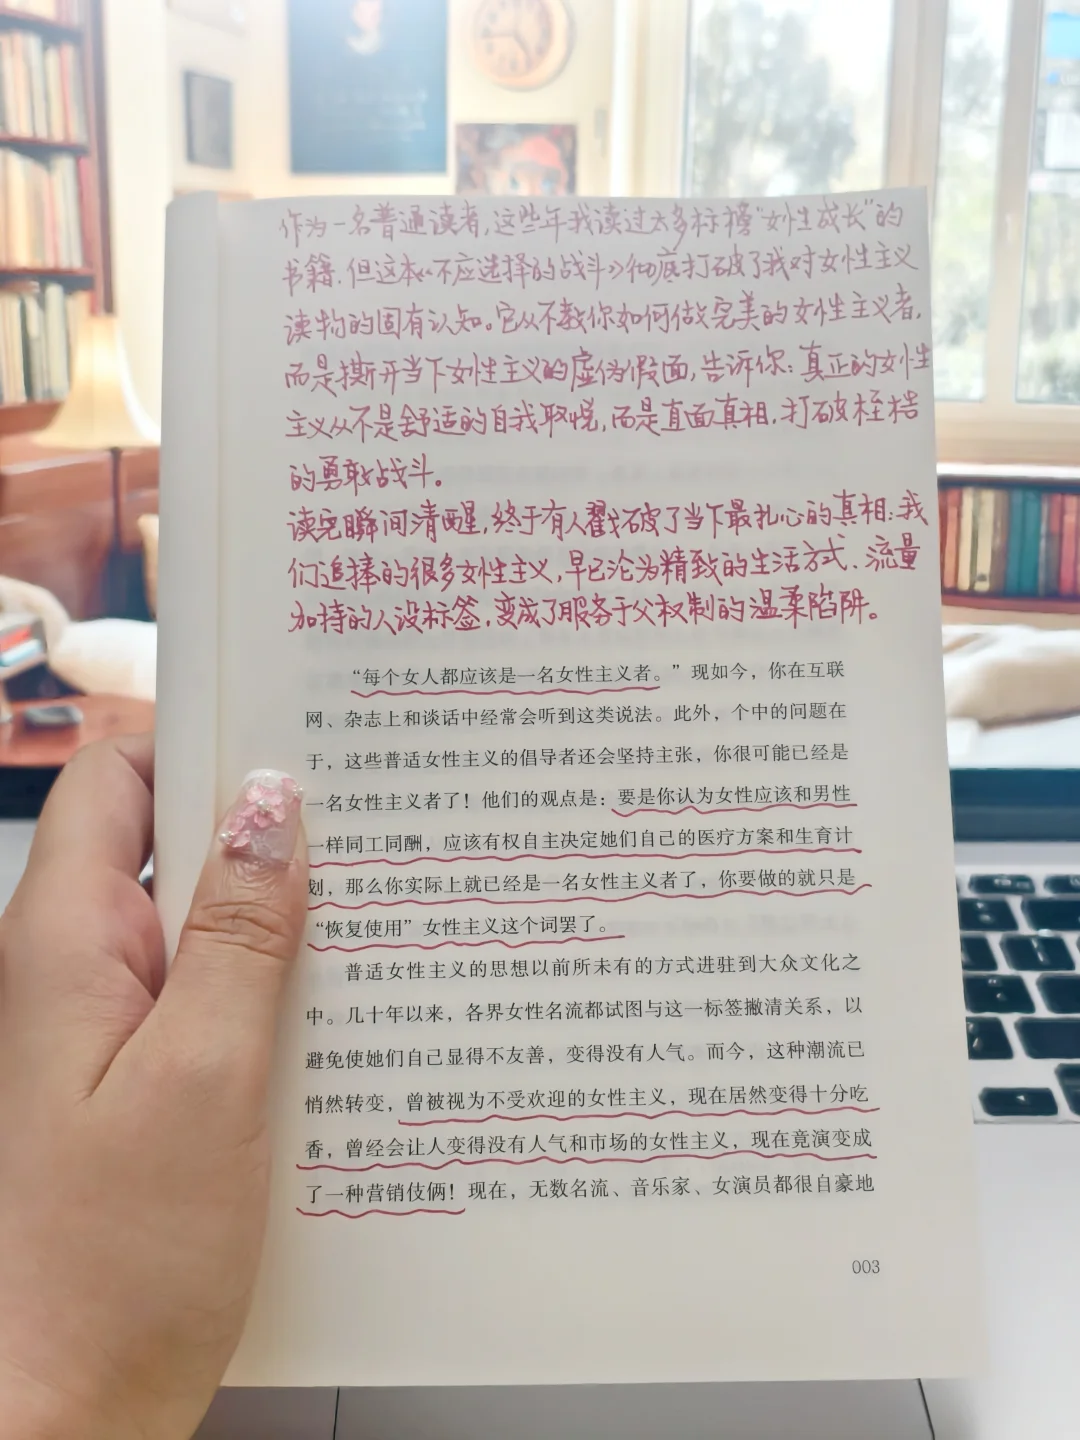 作为一名普通读者,这些年我读过太多标榜“女性成长”的
书籍.但这本《不应选择的战斗》彻底打破了我对女性主义
读物的固有认知。它从不教你如何做完美的女性主义者,
而是撕开当下女性主义的虚伪假面,告诉你:真正的女性
主义从不是舒适的自我取悦,而是直面真相,打破桎梏
的勇敢战斗。
读完瞬间清醒,终于有人戳破了当下最扎心的真相:我
们追捧的很多女性主义,早已沦为精致的生活方式、流量
加持的人设标签,变成了服务于父权制的温柔陷阱。
“每个女人都应该是一名女性主义者。”现如今，你在互联
网、杂志上和谈话中经常会听到这类说法。此外，个中的问题在
于，这些普适女性主义的倡导者还会坚持主张，你很可能已经是
一名女性主义者了！他们的观点是：要是你认为女性应该和男性
一样同工同酬，应该有权自主决定她们自己的医疗方案和生育计
划，那么你实际上就已经是一名女性主义者了，你要做的就只是
“恢复使用”女性主义这个词罢了。
普适女性主义的思想以前所未有的方式进驻到大众文化之
中。几十年以来，各界女性名流都试图与这一标签撇清关系，以
避免使她们自己显得不友善，变得没有人气。而今，这种潮流已
悄然转变，曾被视为不受欢迎的女性主义，现在居然变得十分吃
香，曾经会让人变得没有人气和市场的女性主义，现在竟演变成
了一种营销伎俩！现在，无数名流、音乐家、女演员都很自豪地
003